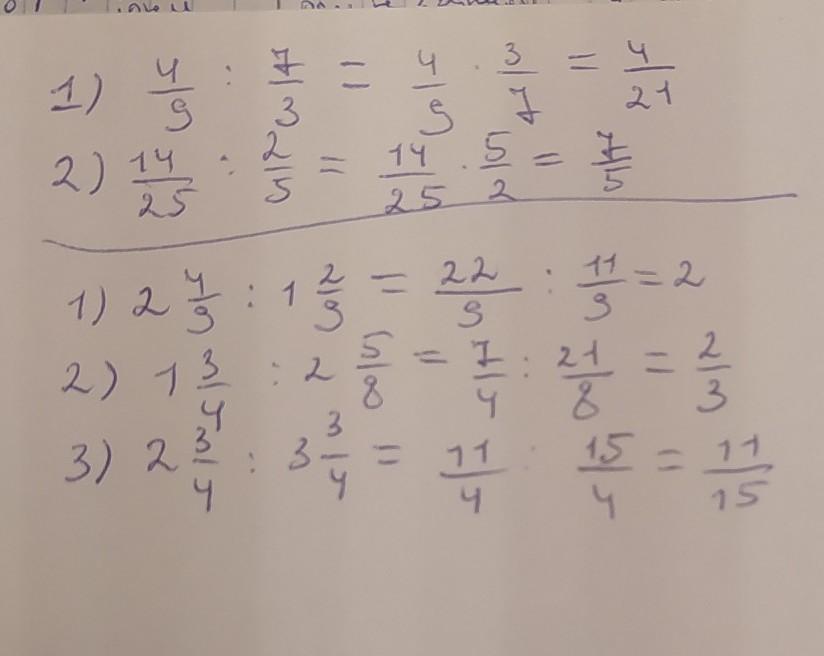 1) 4/9 : 7/3 = 4/9 · 3/7 = 4/21
2) 14/25 : 2/5 = 14/25 · 5/2 = 7/5
1) 2 4/9 : 1 2/9 = 22/9 : 11/9 = 2
2) 1 3/4 : 2 5/8 = 7/4 : 21/8 = 2/3
3) 2 3/4 : 3 3/4 = 11/4 : 15/4 = 11/15